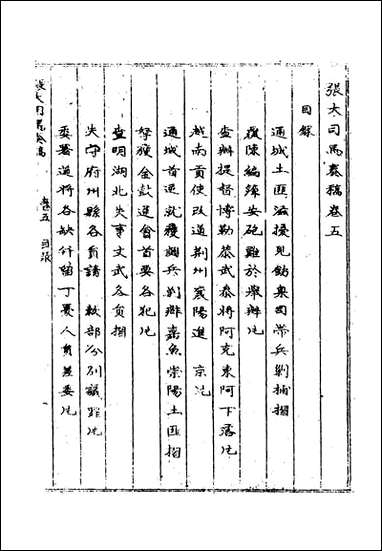 張大司馬奏稿卷五
目錄
通城土匪滋擾見飭臬司帶兵剿捕摺
覆陳編練安礮難於舉辦片
查辦提督博勒恭武泰將阿克東阿下落片
越南貢使改道荆州襄陽進 京片
通城首逆就獲調兵剿辦嘉魚崇陽土匪摺
拏獲金飲逆會首要各犯片
查明湖北失事文武各員摺
失守府州縣各員請 敕部分別議罪片
委署道將各缺什留丁憂人員差委片
張大司馬奏稿 卷五 目錄